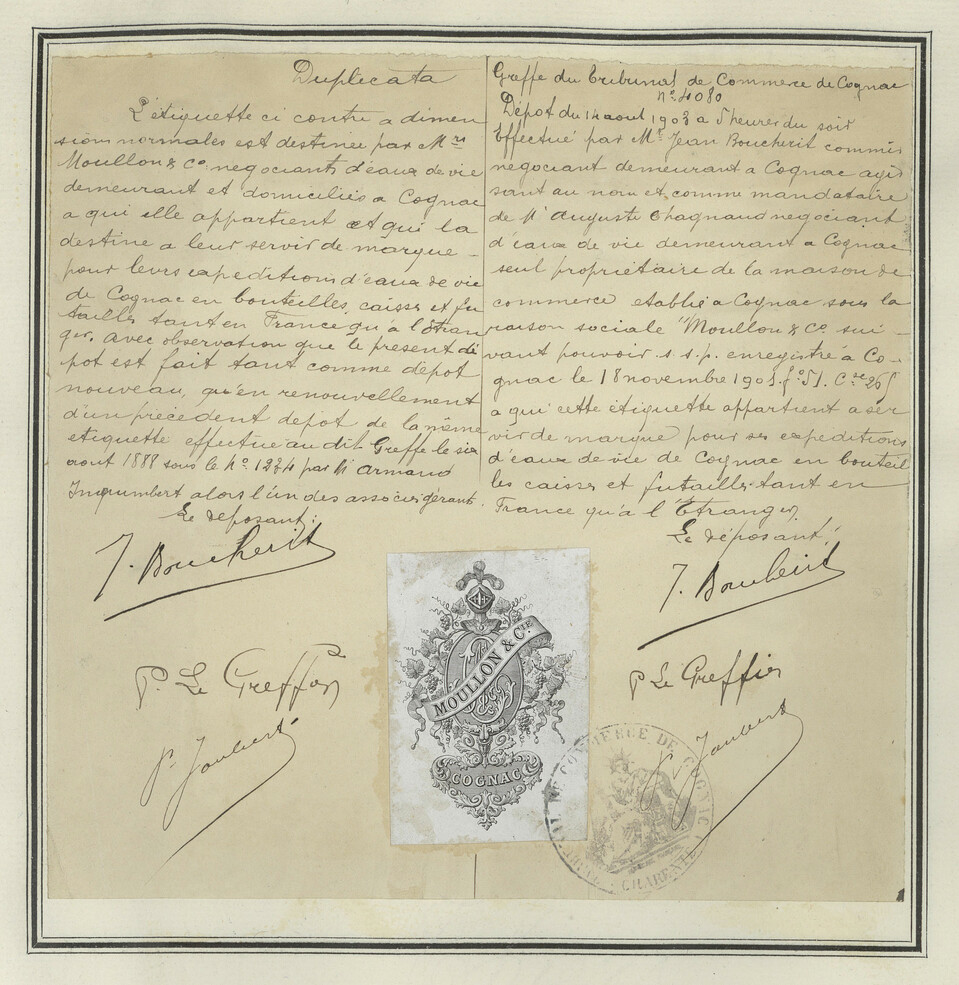 Duplicata
L'étiquette ci contre a dimen
sions normales est destinée par Mrs
Moullon & Co. negociants d'eaux de vie
demeurant et domiciliés a Cognac
a qui elle appartient et qui la
destine a leur servir de marque -
pour leurs expeditions d'eaux de vie
de Cognac en bouteilles, caisses et fu
tailles tant en France qu'a l'étran
ger. avec observation que le present dé
pot est fait tant comme dépot
nouveau, qu'en renouvellement
d'un précédent depot de la même
etiquette effectué au dit Greffe le six
aout 1888 sous le No. 1234 par M Armand
alors l'un des associés gérants.
Le deposant:
J. Boucherit
P. Le Greffier
P. Joubert
Greffe du Tribunal de Commerce de Cognac
No. 4080
Dépot du 14 aout 1903 a 5 heures du soir
Effectué par Mr. Jean Boucherit commis
négociant demeurant a Cognac agis
sant au nom et comme mandataire
de Mr Auguste Chagnaud negociant
d'eaux de vie demeurant a Cognac
seul propriétaire de la maison de
commerce etablie a Cognac sous la
raison sociale "Moullon & Co. sui -
vant pouvoir s.s.p. enregistré à Co -
gnac le 18 novembre 1901. fo. 51. Cse 265
a qui cette étiquette appartient a ser
vir de marque pour ses expeditions
d'eaux de vie de Cognac en bouteil
les caisses et futailles tant en
France qu'a l'Étranger.
Le déposant:
J. Boucherit
P Le Greffier
P. Joubert
MOULLON & CIE
COGNAC
COMMERCE DE COGNAC
CHARENTE